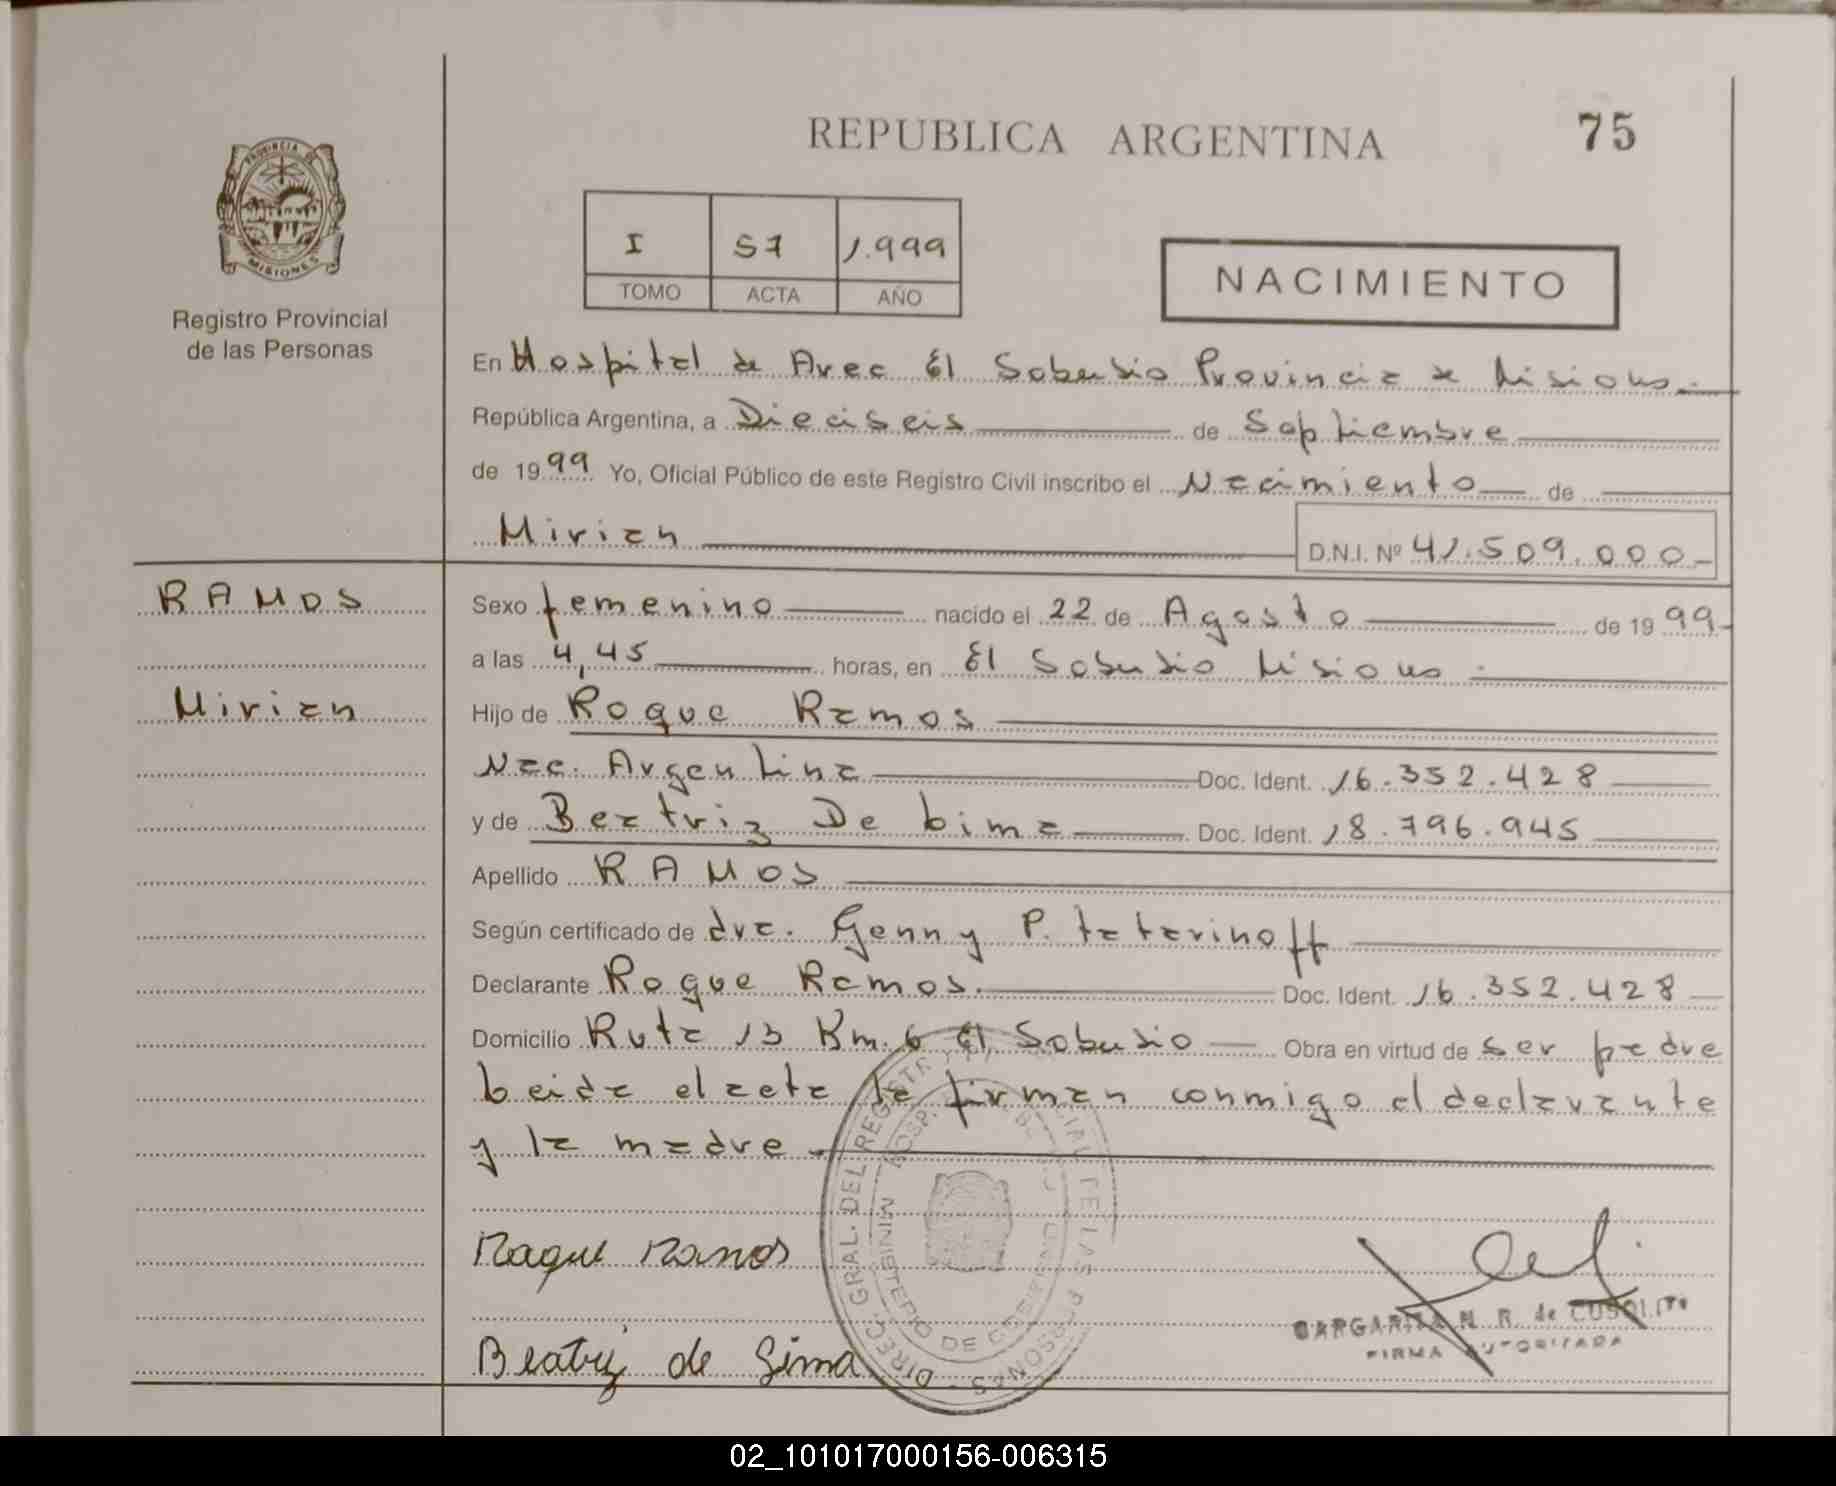 REPUBLICA ARGENTINA
75
PROVINCIA DE
MISIONES
Registro Provincial
de las Personas
I 57 1.999
TOMO ACTA AÑO
NACIMIENTO
En Hospital de Area El Soberbio Provincia de Misiones.-
República Argentina, a Dieciseis de Septiembre
de 1999 Yo, Oficial Público de este Registro Civil inscribo el Nacimiento de
Mirian D.N.I. Nº 41.509.000-
RAMOS
Mirian
Sexo femenino nacido el 22 de Agosto de 1999-
a las 4,45 horas, en El Soberbio Misiones.
Hijo de Roque Ramos
Nac. Argentina Doc. Ident. 16.352.428
y de Beatriz De Lima Doc. Ident. 18.796.945
Apellido RAMOS
Según certificado de dra. Genny P. tatarinoff
Declarante Roque Ramos. Doc. Ident. 16.352.428
Domicilio Ruta 13 Km. 6 El Soberbio Obra en virtud de ser padre
Leida el acta la firman conmigo el declarante
y la madre
Roque Ramos
Beatriz de Lima
DIREC. GRAL. DEL REGISTRO PROVINCIAL DE LAS PERSONAS
MINISTERIO DE GOBIERNO
MARGARITA N. R. de CUSOLITO
FIRMA AUTORIZADA
02_101017000156-006315